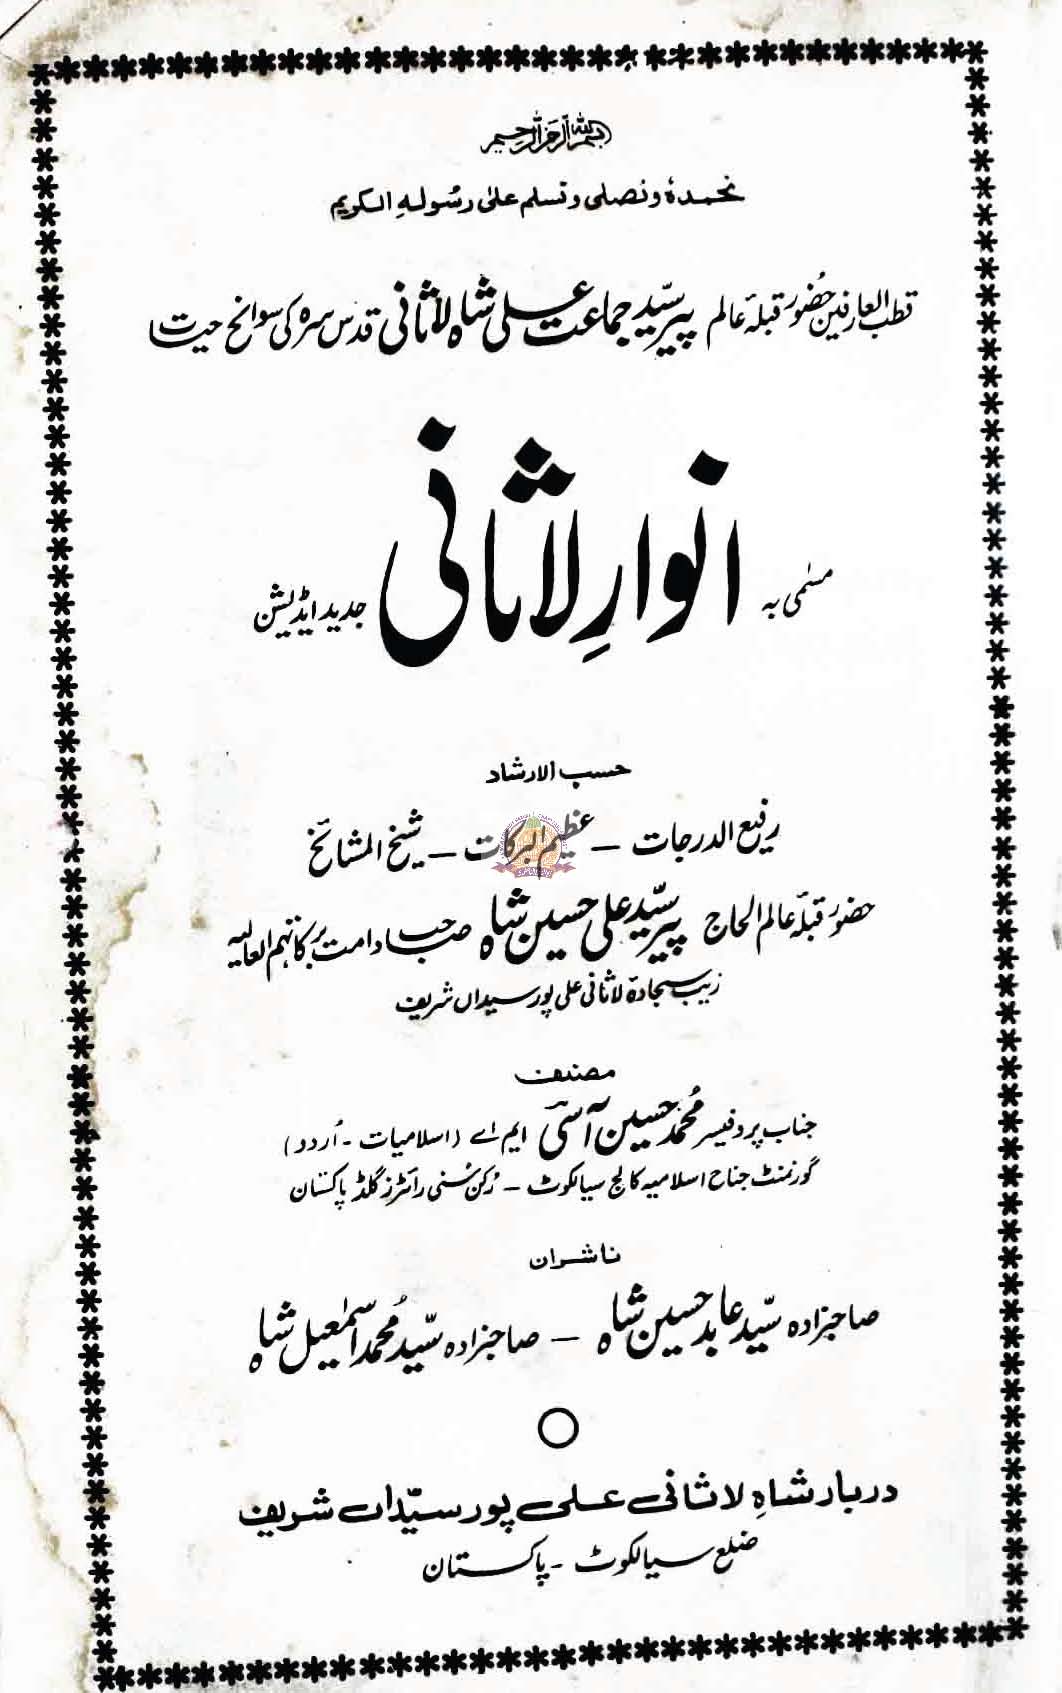 بسم اللہ الرحمٰن الرحیم
نحمدہٗ ونصلی ونسلم علیٰ رسولہِ الکریم
قطب العارفین حضُور قبلۂ عالم پیر سیّد جماعت علی شاہ لاثانی قدس سرہ کی سوانح حیات
مسمٰی بہ انوارِ لاثانی جدید ایڈیشن
حسب الارشاد
رفیع الدرجات – عظیم البرکات – شیخ المشائخ
حضور قبلۂ عالم الحاج پیر سیّد علی حسین شاہ صاحب دامت برکاتہم العالیہ
زیب سجادہ لاثانی علی پور سیداں شریف
مصنف
جناب پروفیسر مُحمد حسین آسیؔ ایم اے (اسلامیات - اُردو)
گورنمنٹ جناح اسلامیہ کالج سیالکوٹ – رُکن سُنی رائٹرز گلڈ پاکستان
ناشران
صاحبزادہ سیّد عابد حسین شاہ – صاحبزادہ سیّد مُحمد اسمٰعیل شاہ
دربار شاہِ لاثانی علی پور سیّداں شریف
ضلع سیالکوٹ - پاکستان